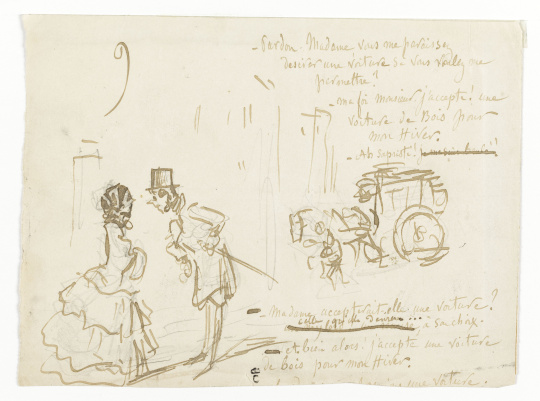 9
- Pardon. Madame vous me paraissez
désirer une voiture si vous voulez me
permettre?
- ma foi monsieur j'accepte! une
voiture de Bois pour
mon Hiver.
- Ah sapristi!
- Madame accepterait-elle une voiture?
à Sa choix.
- et bien alors! j'accepte une voiture
de bois pour mon Hiver.
une voiture.